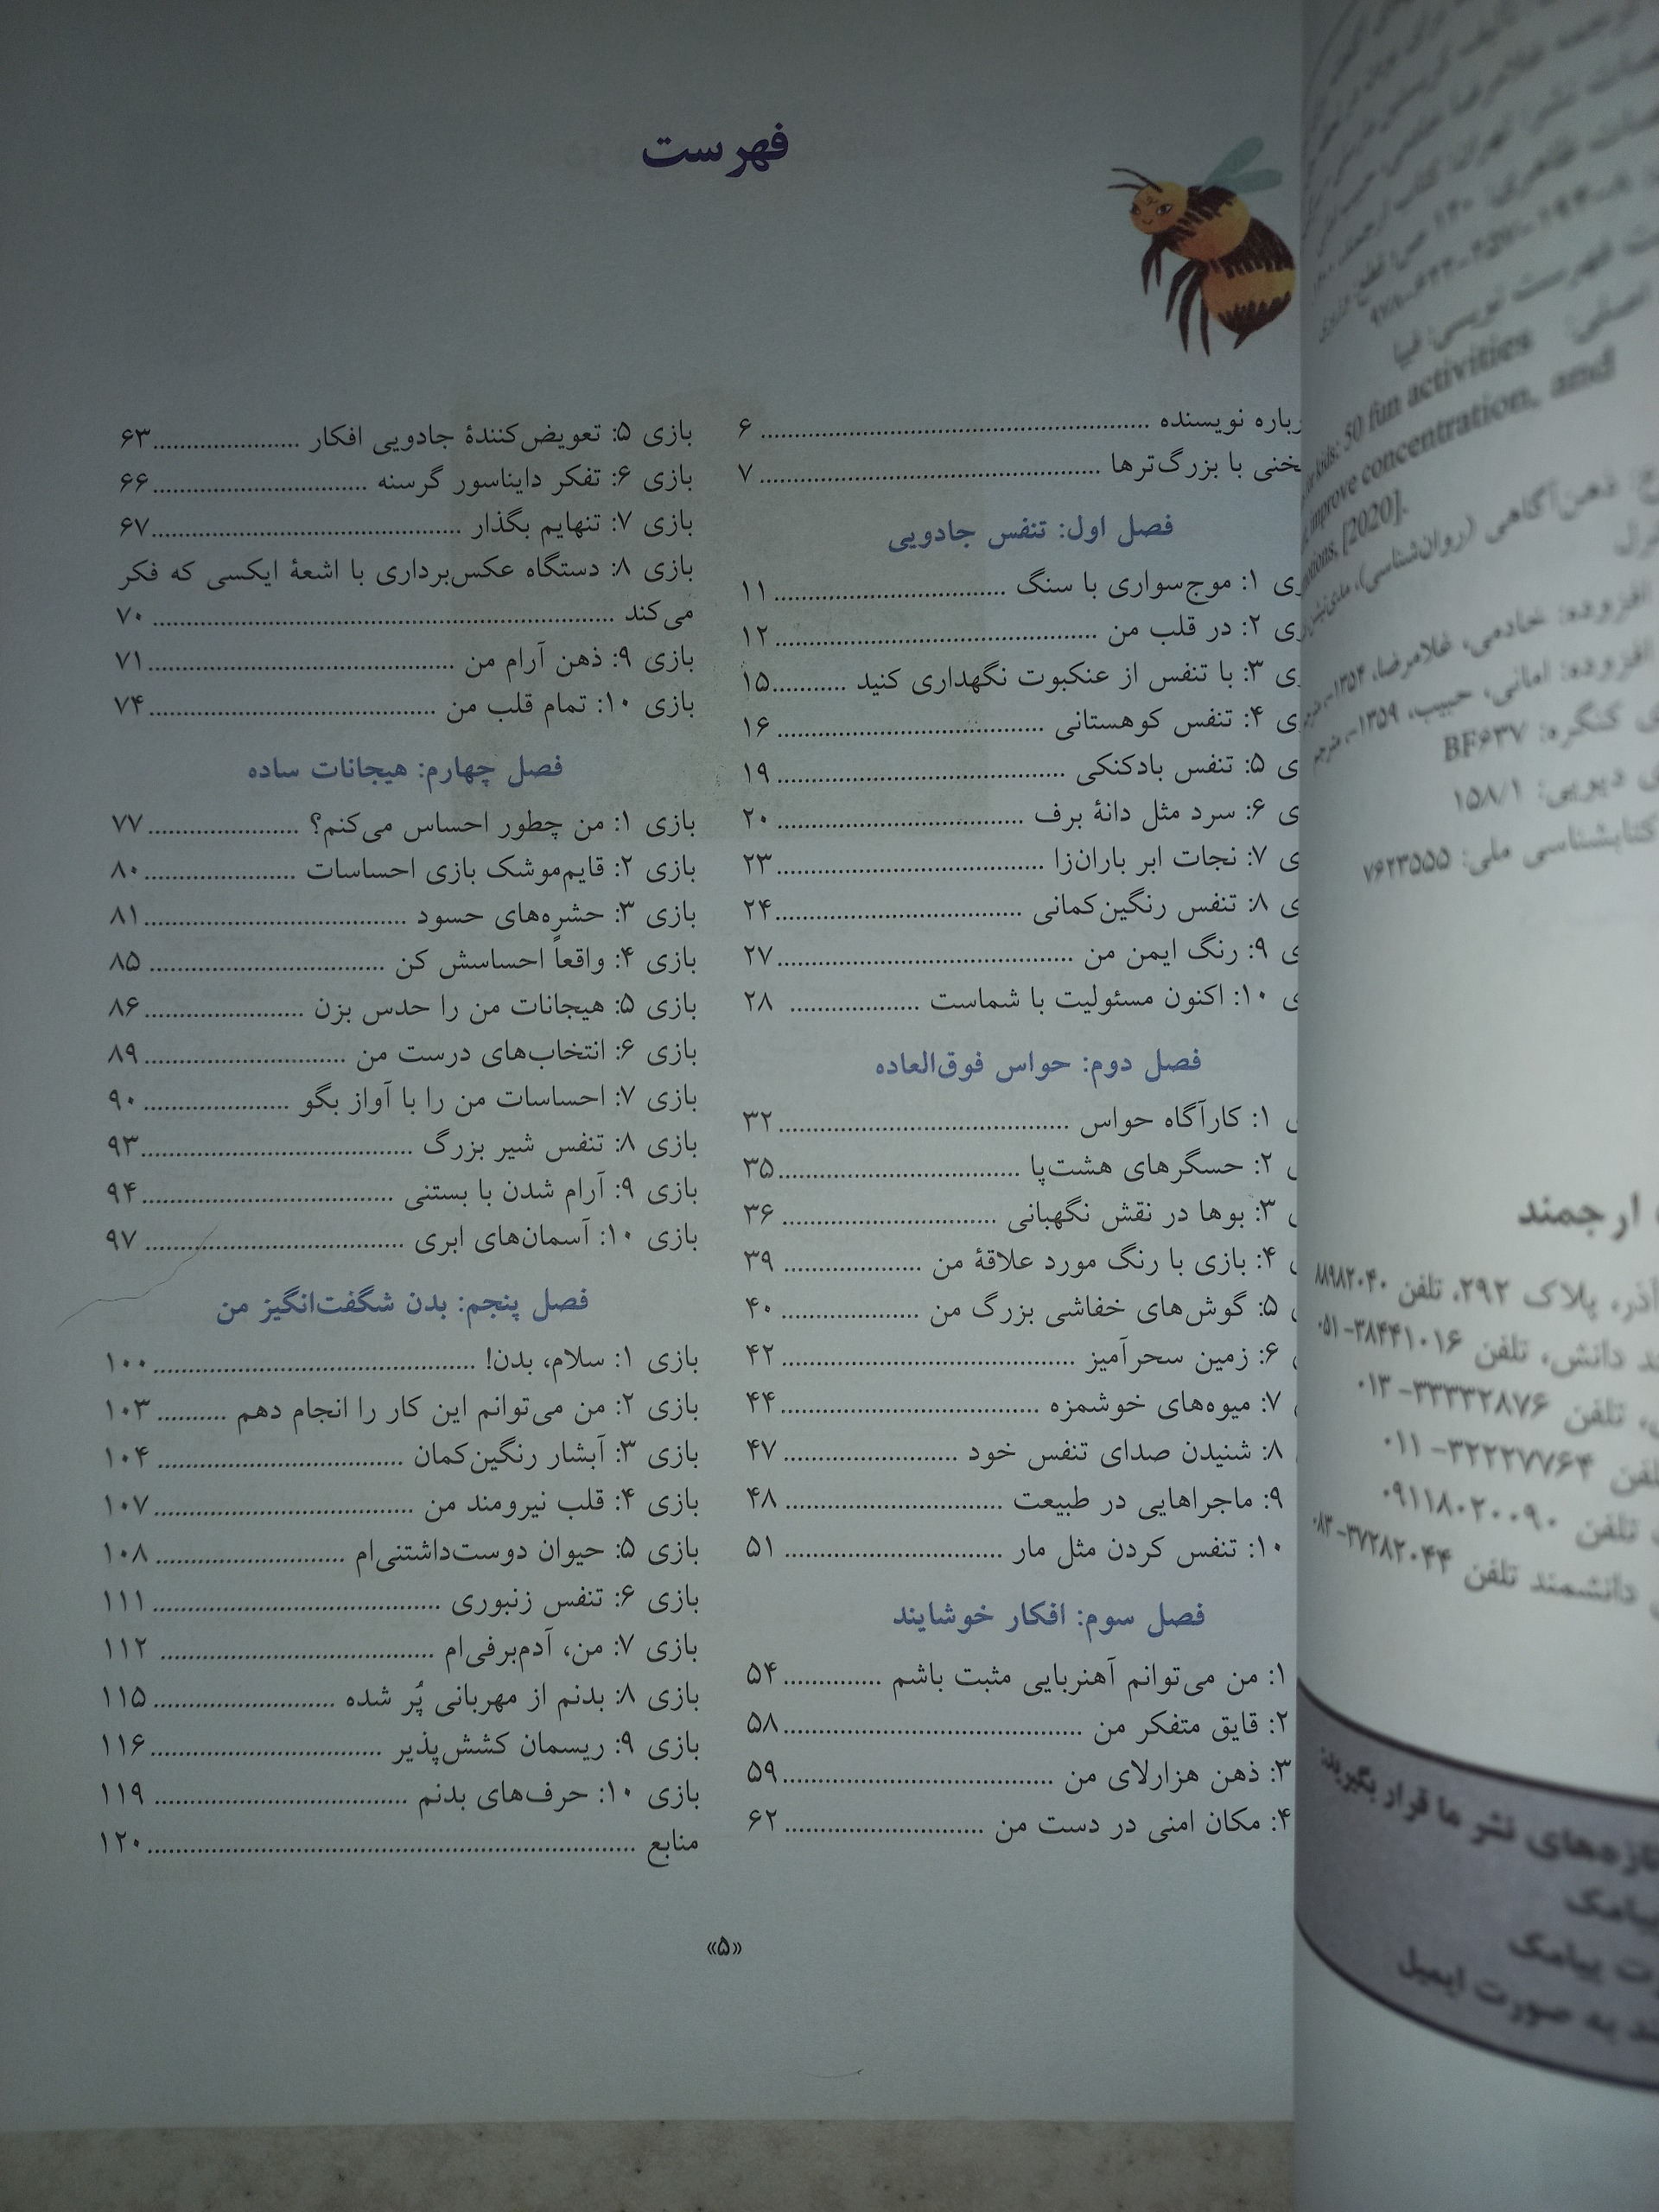 فهرست
نویسنده ........ ۶
با بزرگ‌ترها ........ ۷
فصل اول: تنفس جادویی
۱: موج‌سواری با سنگ ........ ۱۱
۲: در قلب من ........ ۱۲
۳: با تنفس از عنکبوت نگهداری کنید ........ ۱۵
۴: تنفس کوهستانی ........ ۱۶
۵: تنفس بادکنکی ........ ۱۹
۶: سرد مثل دانهٔ برف ........ ۲۰
۷: نجات ابر باران‌زا ........ ۲۳
۸: تنفس رنگین‌کمانی ........ ۲۴
۹: رنگ ایمن من ........ ۲۷
۱۰: اکنون مسئولیت با شماست ........ ۲۸
فصل دوم: حواس فوق‌العاده
۱: کارآگاه حواس ........ ۳۲
۲: حسگرهای هشت‌پا ........ ۳۵
۳: بوها در نقش نگهبانی ........ ۳۶
۴: بازی با رنگ مورد علاقهٔ من ........ ۳۹
۵: گوش‌های خفاشی بزرگ من ........ ۴۰
۶: زمین سحرآمیز ........ ۴۲
۷: میوه‌های خوشمزه ........ ۴۴
۸: شنیدن صدای تنفس خود ........ ۴۷
۹: ماجراهایی در طبیعت ........ ۴۸
۱۰: تنفس کردن مثل مار ........ ۵۱
فصل سوم: افکار خوشایند
۱: من می‌توانم آهنربایی مثبت باشم ........ ۵۴
۲: قایق متفکر من ........ ۵۸
۳: ذهن هزارلای من ........ ۵۹
۴: مکان امنی در دست من ........ ۶۲
بازی ۵: تعویض‌کنندهٔ جادویی افکار ........ ۶۳
بازی ۶: تفکر دایناسور گرسنه ........ ۶۶
بازی ۷: تنهایم بگذار ........ ۶۷
بازی ۸: دستگاه عکس‌برداری با اشعهٔ ایکسی که فکر
می‌کند ........ ۷۰
بازی ۹: ذهن آرام من ........ ۷۱
بازی ۱۰: تمام قلب من ........ ۷۴
فصل چهارم: هیجانات ساده
بازی ۱: من چطور احساس می‌کنم؟ ........ ۷۷
بازی ۲: قایم‌موشک بازی احساسات ........ ۸۰
بازی ۳: حشره‌های حسود ........ ۸۱
بازی ۴: واقعاً احساسش کن ........ ۸۵
بازی ۵: هیجانات من را حدس بزن ........ ۸۶
بازی ۶: انتخاب‌های درست من ........ ۸۹
بازی ۷: احساسات من را با آواز بگو ........ ۹۰
بازی ۸: تنفس شیر بزرگ ........ ۹۳
بازی ۹: آرام شدن با بستنی ........ ۹۴
بازی ۱۰: آسمان‌های ابری ........ ۹۷
فصل پنجم: بدن شگفت‌انگیز من
بازی ۱: سلام، بدن! ........ ۱۰۰
بازی ۲: من می‌توانم این کار را انجام دهم ........ ۱۰۳
بازی ۳: آبشار رنگین‌کمان ........ ۱۰۴
بازی ۴: قلب نیرومند من ........ ۱۰۷
بازی ۵: حیوان دوست‌داشتنی‌ام ........ ۱۰۸
بازی ۶: تنفس زنبوری ........ ۱۱۱
بازی ۷: من، آدم‌برفی‌ام ........ ۱۱۲
بازی ۸: بدنم از مهربانی پُر شده ........ ۱۱۵
بازی ۹: ریسمان کشش‌پذیر ........ ۱۱۶
بازی ۱۰: حرف‌های بدنم ........ ۱۱۹
منابع ........ ۱۲۰
«۵»
فهرست نویسی: فیپا
اصلی:
kids: 50 fun activities
improve concentration, and
[2020].
ذهن‌آگاهی (روان‌شناسی)
افزوده: خادمی، غلامرضا، ۱۳۵۴-
افزوده: امانی، حبیب، ۱۳۵۹-، مترجم
کنگره: BF۶۳۷
دیویی: ۱۵۸/۱
کتابشناسی ملی: ۷۶۲۳۵۵۵
ارجمند
آذر، پلاک ۲۹۲، تلفن ۸۸۹۸۲۰۴۰
دانش، تلفن ۳۸۴۴۱۰۱۶-۰۵۱
تلفن ۳۳۳۳۲۸۷۶-۰۱۳
تلفن ۳۲۲۲۷۷۶۴-۰۱۱
تلفن ۰۹۱۱۸۰۲۰۰۹۰
دانشمند تلفن ۳۷۲۸۲۰۴۴-۰۸۳
تازه‌های نشر ما قرار بگیرید:
پیامک
پیامک
به صورت ایمیل